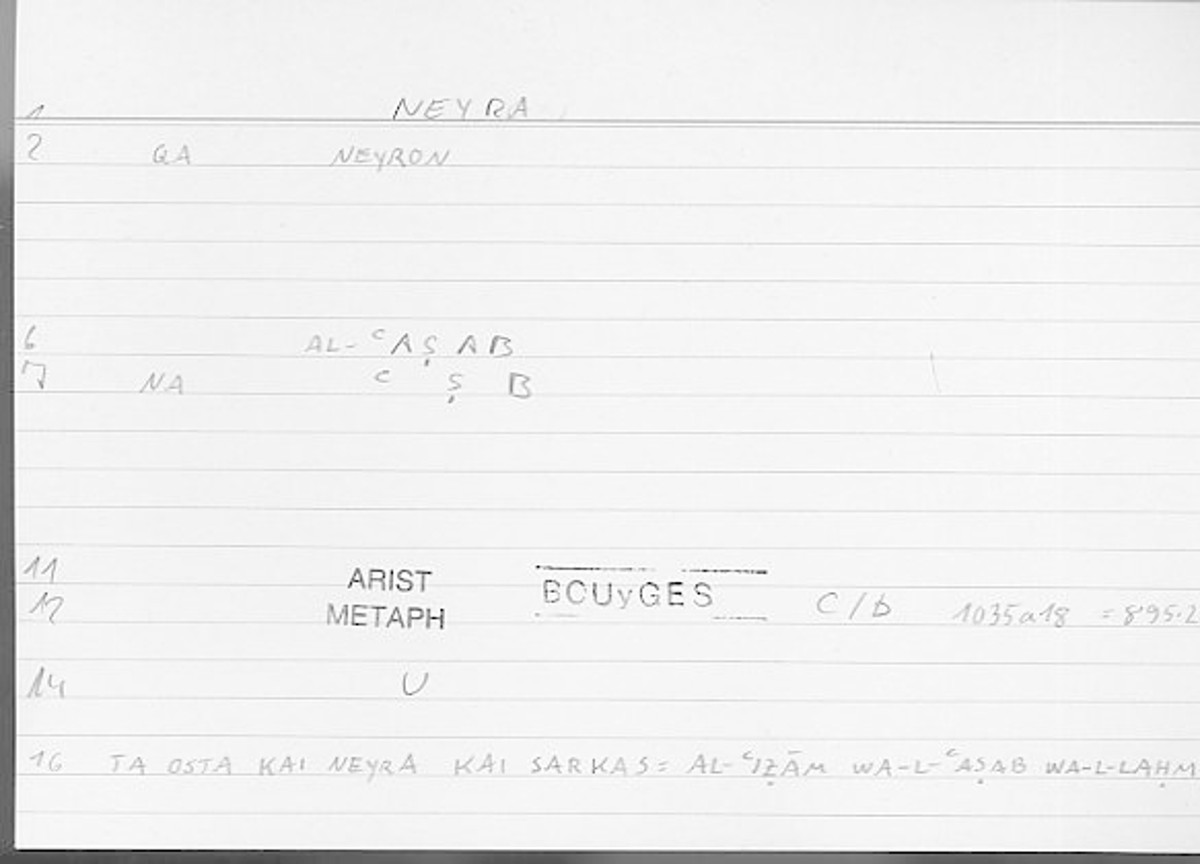 1 NEYRA
2 GA NEYRON
6 AL-ʿAṢAB
7 NA ʿ Ṣ B
11 ARIST
12 METAPH BOUyGES C/b 1035a18 = 895.2
14 U
16 TA OSTA KAI NEYRA KAI SARKAS = AL-ʿIẒĀM WA-L-ʿAṢAB WA-L-LAḤM